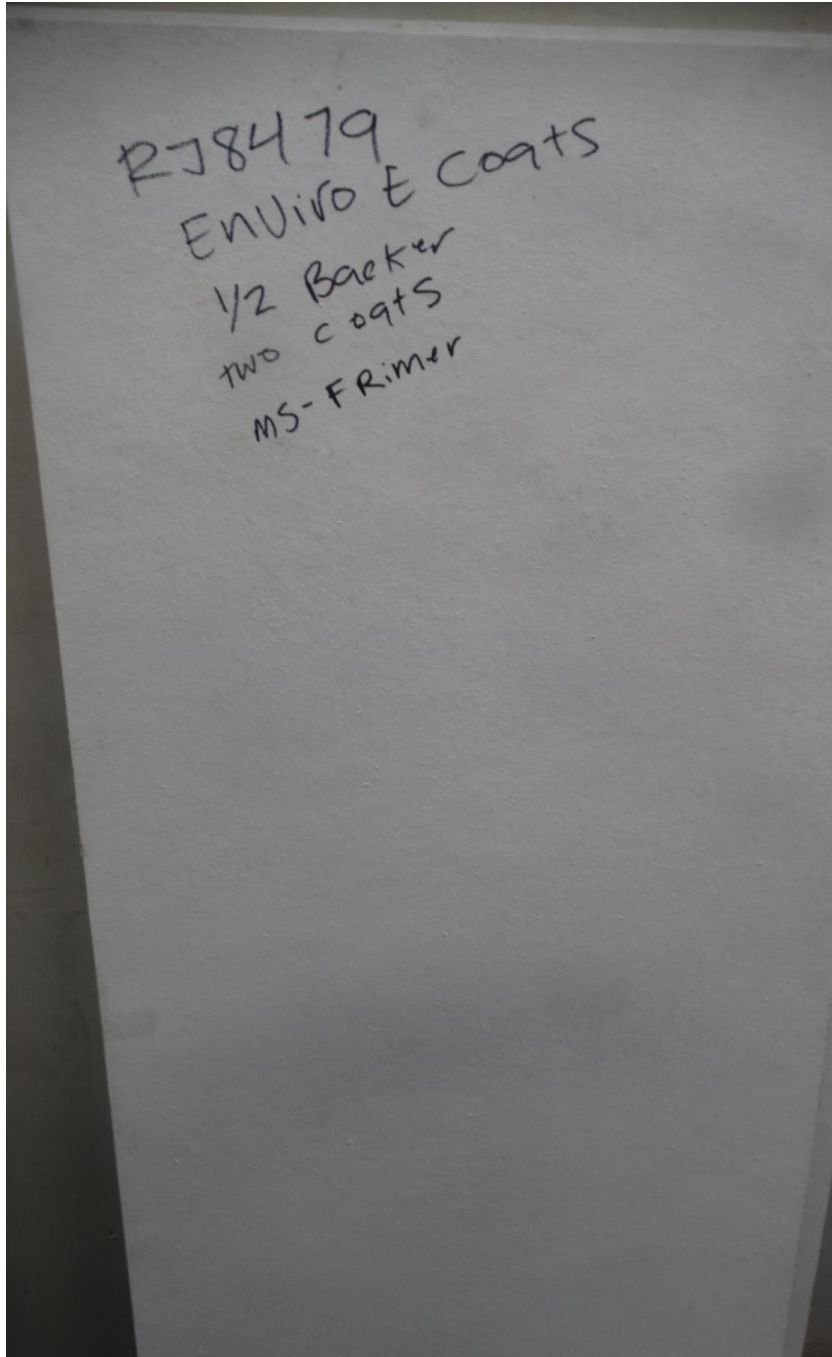 RJ8479
EnViro E Coats
1/2 Backer
two coats
MS-FRimer